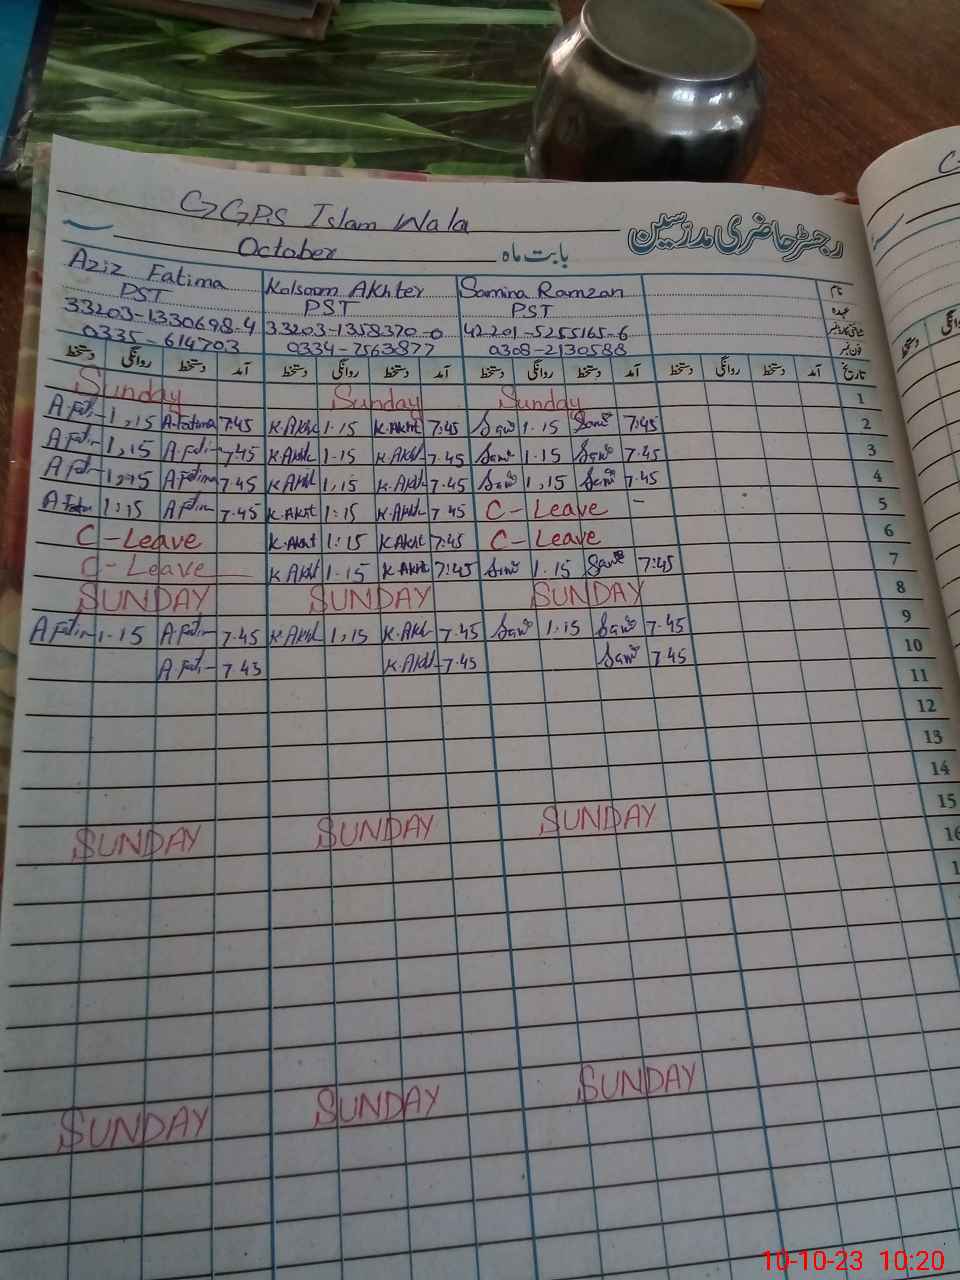 GGPS Islam Wala
رجسٹر حاضری مدرسین
October بابت ماہ
Aziz Fatima Kolsoom Akhter Samina Ramzan نام
PST PST PST عہدہ
33203-1330698-4 33203-1358370-0 42201-5255165-6
0335-614703 0334-7563877 0308-2130588 فون نمبر
دستخط روانگی دستخط آمد دستخط روانگی دستخط آمد دستخط روانگی دستخط آمد دستخط روانگی دستخط آمد تاریخ
Sunday Sunday Sunday 1
A.Fati- 1,15 A.Fatima 7:45 K.Akht 1.15 K.Akht 7.45 Sam 1.15 Sam 7.45 2
A.Fati- 1,15 A.Fati- 7.45 K.Akht 1.15 K.Akht 7.45 Sam 1.15 Sam 7.45 3
A.Fati- 1,15 A.Fatima 7.45 K.Akht 1,15 K.Akht 7.45 Sam 1,15 Sam 7.45 4
A.Fati- 1:15 A.Fati- 7.45 K.Akht 1:15 K.Akht 7.45 C-Leave - 5
C-Leave K.Akht 1:15 K.Akht 7.45 C-Leave 6
C-Leave K.Akht 1.15 K.Akht 7:45 Sam 1.15 Sam 7:45 7
SUNDAY SUNDAY SUNDAY 8
A.Fati- 1.15 A.Fati- 7.45 K.Akht 1,15 K.Akht 7.45 Sam 1,15 Sam 7.45 9
A.Fati- 7.45 K.Akht 7.45 Sam 7.45 10
11
12
13
14
SUNDAY SUNDAY SUNDAY 15
16
SUNDAY SUNDAY SUNDAY
10-10-23 10:20